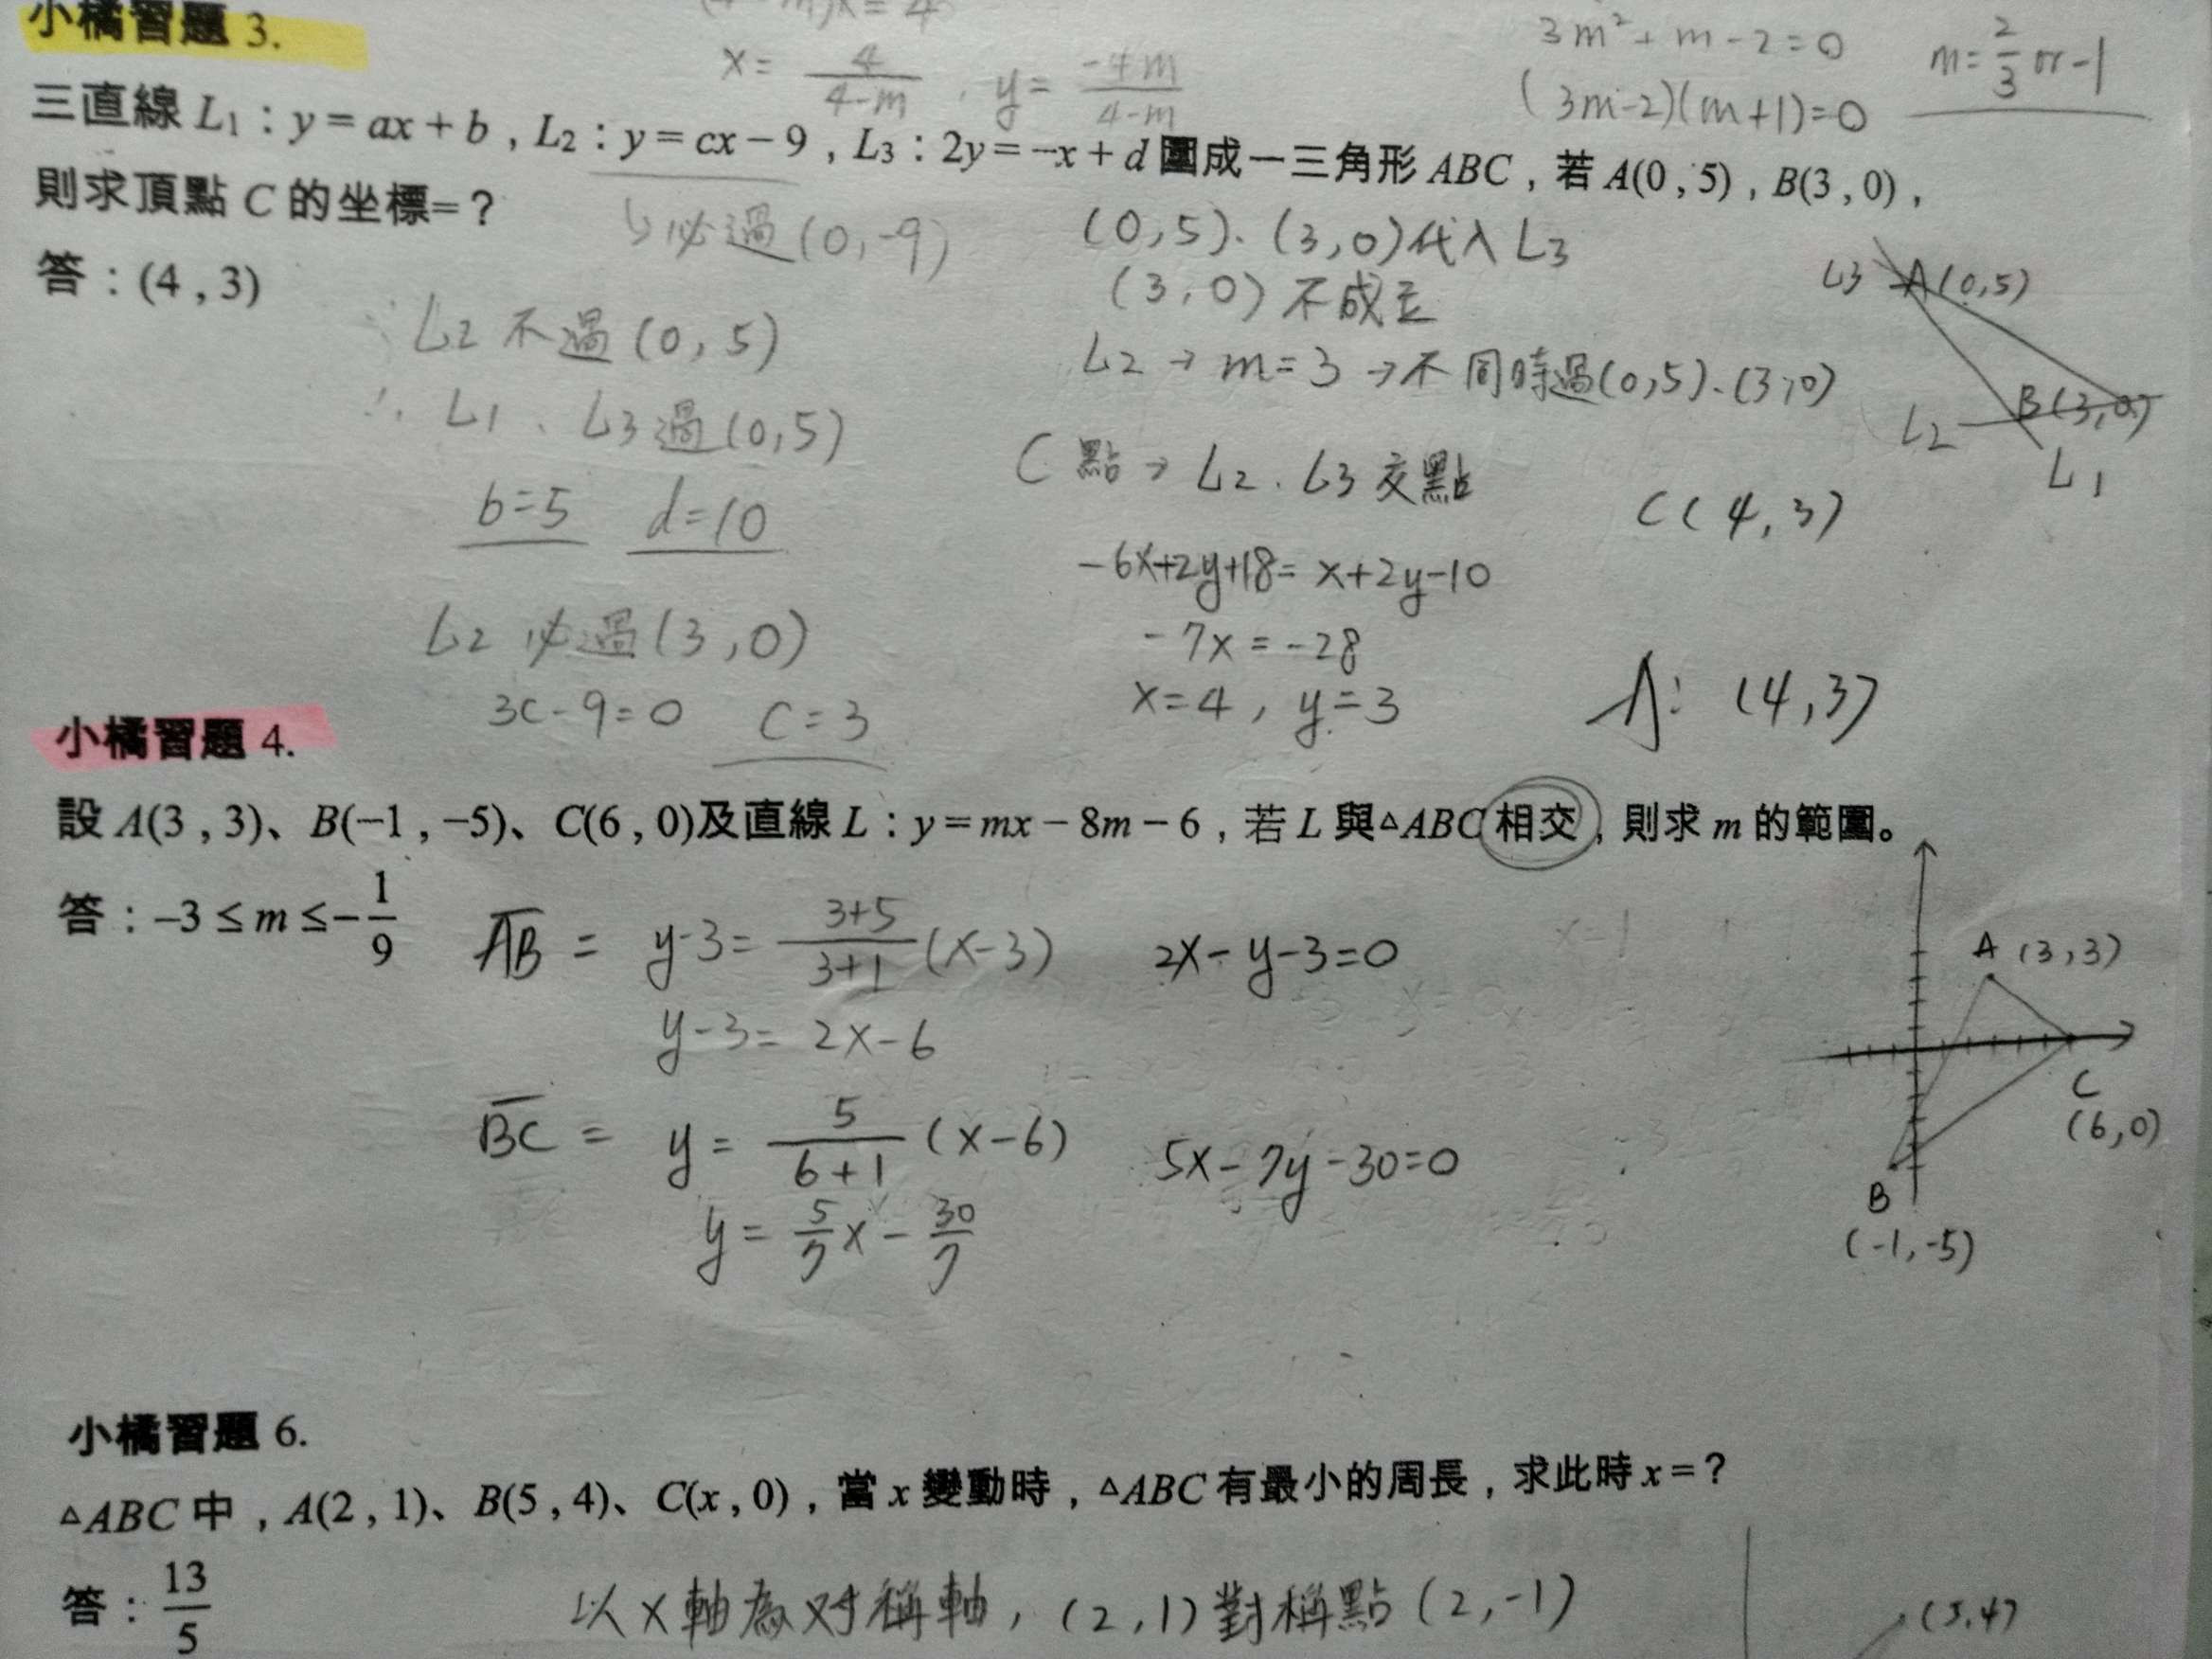 小橘習題 3.
x = 4/(4-m) , y = -4m/(4-m)
3m²+m-2=0
(3m-2)(m+1)=0
m=2/3 or -1
三直線 L₁：y = ax + b，L₂：y = cx − 9，L₃：2y = −x + d 圍成一三角形 ABC，若 A(0 , 5)，B(3 , 0)，
則求頂點 C 的坐標=？
答：(4 , 3)
↳必過(0,-9)
L2 不過(0,5)
∴ L1、L3過(0,5)
b=5 d=10
L2 必過(3,0)
3c-9=0 c=3
(0,5)、(3,0)代入 L3
(3,0) 不成立
L2 → m=3 →不同時過(0,5)、(3,0)
C 點 → L2、L3 交點
-6x+2y+18= x+2y-10
-7x = -28
x=4 , y=3
L3 A(0,5)
B(3,0)
L2
L1
C(4,3)
A: (4,3)
小橘習題 4.
設 A(3 , 3)、B(−1 , −5)、C(6 , 0)及直線 L：y = mx − 8m − 6，若 L 與△ABC 相交，則求 m 的範圍。
答：−3 ≤ m ≤ −1/9
AB = y-3= (3+5)/(3+1) (x-3) 2x-y-3=0
y-3= 2x-6
BC = y = 5/(6+1) (x-6) 5x-7y-30=0
y = 5/7 x - 30/7
A (3,3)
C
(6,0)
B
(-1,-5)
小橘習題 6.
△ABC 中，A(2 , 1)、B(5 , 4)、C(x , 0)，當 x 變動時，△ABC 有最小的周長，求此時 x =？
答：13/5
以 x 軸為对稱軸，(2,1)對稱點(2,-1)
(5,4)